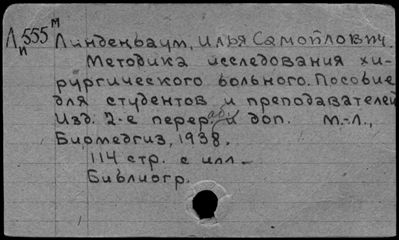 Л 555 м
и
Линденбаум, Илья Самойлович.
Методика исследования хи-
рургического больного. Пособие
для студентов и преподавателей
Изд. 2-е перер. и доп. М.-Л.,
Биомедгиз, 1938.
114 стр. с илл.
Библиогр.